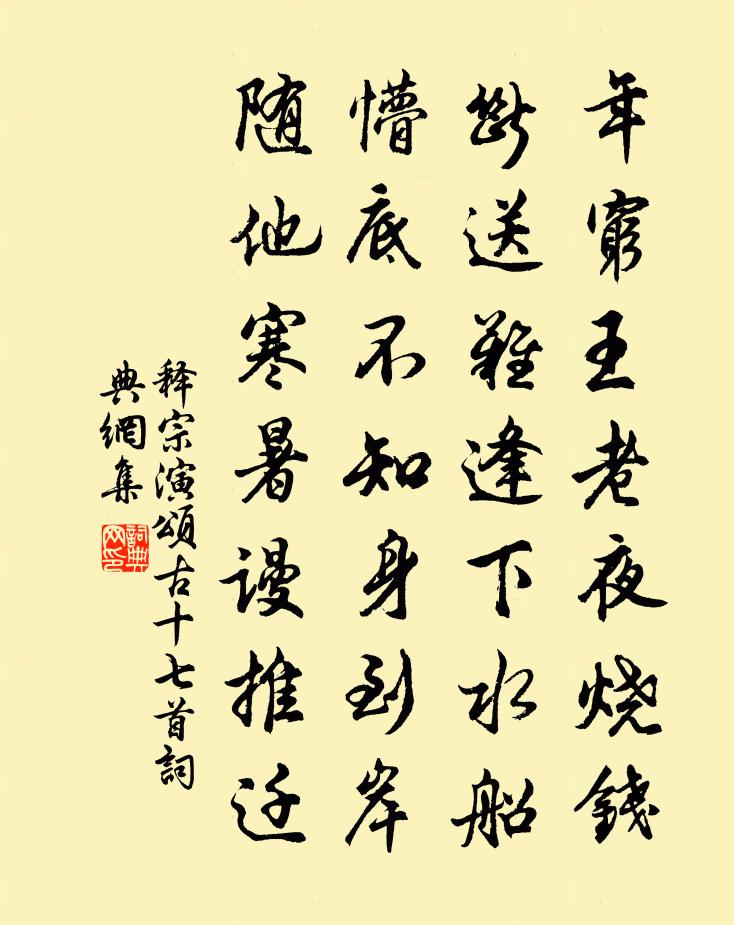 年窮王老夜烧錢
斷送難逢下水船
懵底不知身到岸
随他寒暑谩推迁
释宗演頌古十七首詞
典網集
詞典
网印